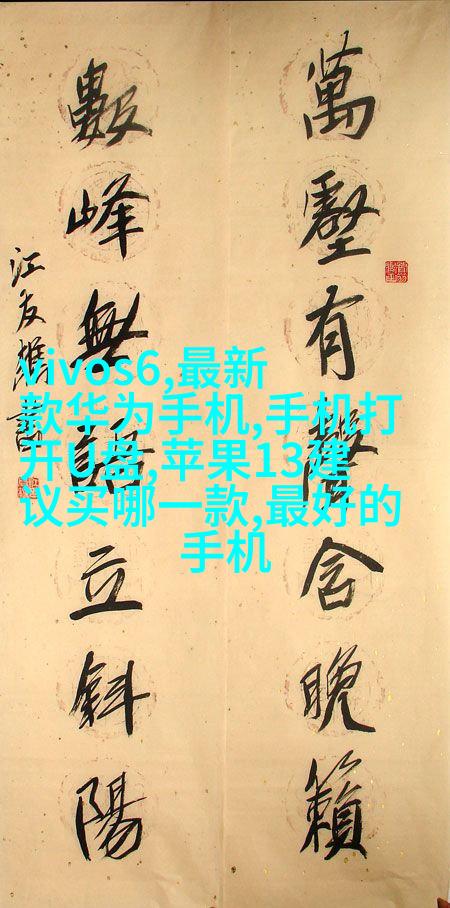 萬壑有聲含晚籟
數峰無語立斜陽
江友樵書
vivos6,最新
款华为手机,手机打
开U盘,苹果13建
议买哪一款,最好的
手机